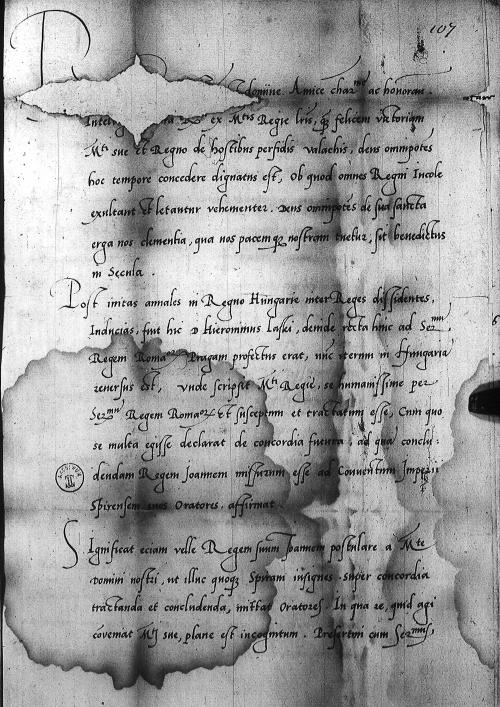 107
domine. Amice char^me ac honoran.
ex M^tis Regie l̃ris, q felicem victoriam
M^ti sue et Regno de hostibus perfidis valachis, deus omnipotes
hoc tempore concedere dignatus est, Ob quod omnes Regni Incole
exultant et letantur vehementer. Deus omnipotes de sua sancta
erga nos clementia, qua nos pacemq nostram tuetur, sit benedictus
in Secula.
Post initas annales in Regno Hungarie inter Reges dissidentes,
Inducias, fuit hic D Hieronimus Laski, deinde recta hinc ad Ser^mu,
Regem Roma Pragam profectus erat, nũc iterum in Hungaria
reversus est, unde scripsit M^ti Regie, se humanissime per
Ser^mu Regem Roma et susceptum et tractatum esse, Cum quo
se multa egisse declarat de concordia futura, ad quã conclu:
dendam Regem Joannem missurum esse ad Conventum Imperii
Spirensem suos Oratores, affirmat.
Significat eciam velle Regem suum Joannem postulare a M^te
Domini nostri, ut illuc quoq Spiram insignes super concordia
tractanda et concludenda, mittat Oratores. In qua re, quid agi
coveniat M^ti sue, plane est incognitum. Presertim cum Ser^mus,